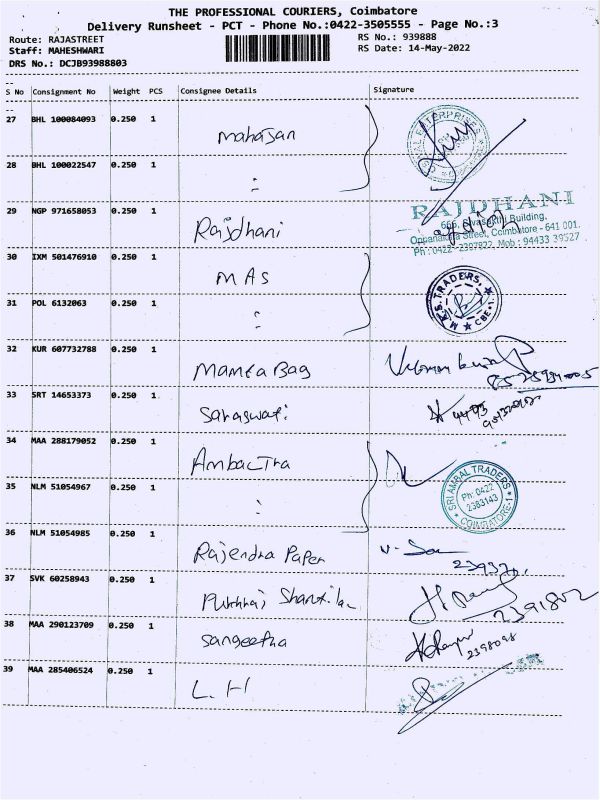 THE PROFESSIONAL COURIERS, Coimbatore
Delivery Runsheet - PCT - Phone No.:0422-3505555 - Page No.:3
Route: RAJASTREET RS No.: 939888
Staff: MAHESHWARI RS Date: 14-May-2022
DRS No.: DCJB93988803
S No Consignment No Weight PCS Consignee Details Signature
27 BHL 100084093 0.250 1 mahajan
28 BHL 100022547 0.250 1 :
29 NGP 971658053 0.250 1 Rajdhani
RAJDHANI
666, Sivasakthi Building,
Oppanakara Street, Coimbatore - 641 001.
Ph : 0422 - 2397822, Mob : 94433 39527
30 IXM 501476910 0.250 1 MAS
31 POL 6132063 0.250 1 :
M.A.S. TRADERS CBE-1
32 KUR 607732788 0.250 1 Mamta Bag
33 SRT 14653373 0.250 1 Saraswati
34 MAA 288179052 0.250 1 Ambactra
35 NLM 51054967 0.250 1 :
SRI AMBAL TRADERS
Ph: 0422
2383143
COIMBATORE-1
36 NLM 51054985 0.250 1 Rajendra Paper
37 SVK 60258943 0.250 1 2391802
38 MAA 290123709 0.250 1 Sangeetha 2398098
39 MAA 285406524 0.250 1 L.H